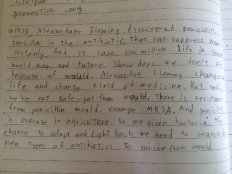 lifespan
prevention only
1928 Alexander Fleming discovered penicillin.
penicillin is the antibiotic that can suppress many
certainly. And it save 200 million life in the
world now and future. These days we don't
because of mould. Alexander Fleming change
life and change field of medicine. But
we're not safe yet from mould. There is resistance
from penicillin mould. example MRSA. And
is overuse in agriculture. So we given bacteria the
chance to adapt and fight back. we need to search
new types of antibiotics to from mould